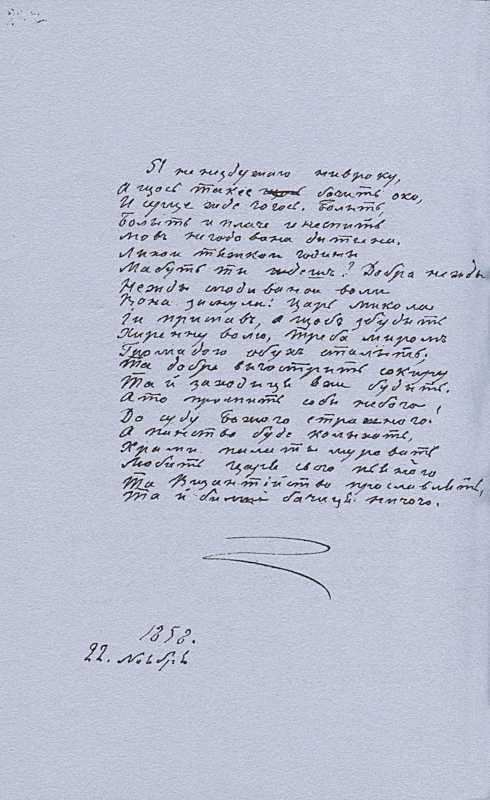 Я не нездужаю нивроку,
А щось такеє бачить око,
И серце жде чогось. Болить,
Болить и плаче и неспить
Мовъ негодована дитина.
Лихои тяжкои години
Мабуть ти ждешъ? Добра нежди
Нежди сподиванои воли
Вона заснула: Царь Микола
Іи приспавъ, а щобъ збудить
Хиренну волю, треба миромъ
Громадою обухъ сталить;
Та добре вигострить сокиру
Та й заходиця вже будить.
Ато проспить соби небога,
До суду Божого страшного.
А панство буде колихать,
Храми палати муровать
Любить царя свого пьяного
Та Византійство прославлять,
Та й билше бачиця ничого.
1858.
22. Ноября